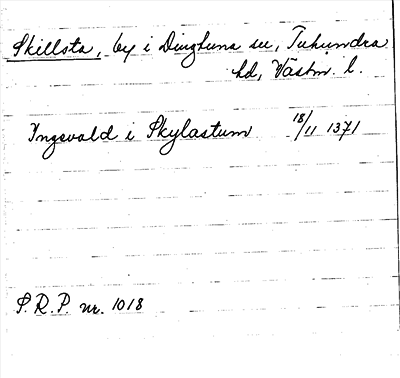 Skillsta, by i Dingtuna sn, Tuhundra
hd, Västm. l.
Yngevald i Skylastum 18/11 1371
S.R.P. nr. 1018